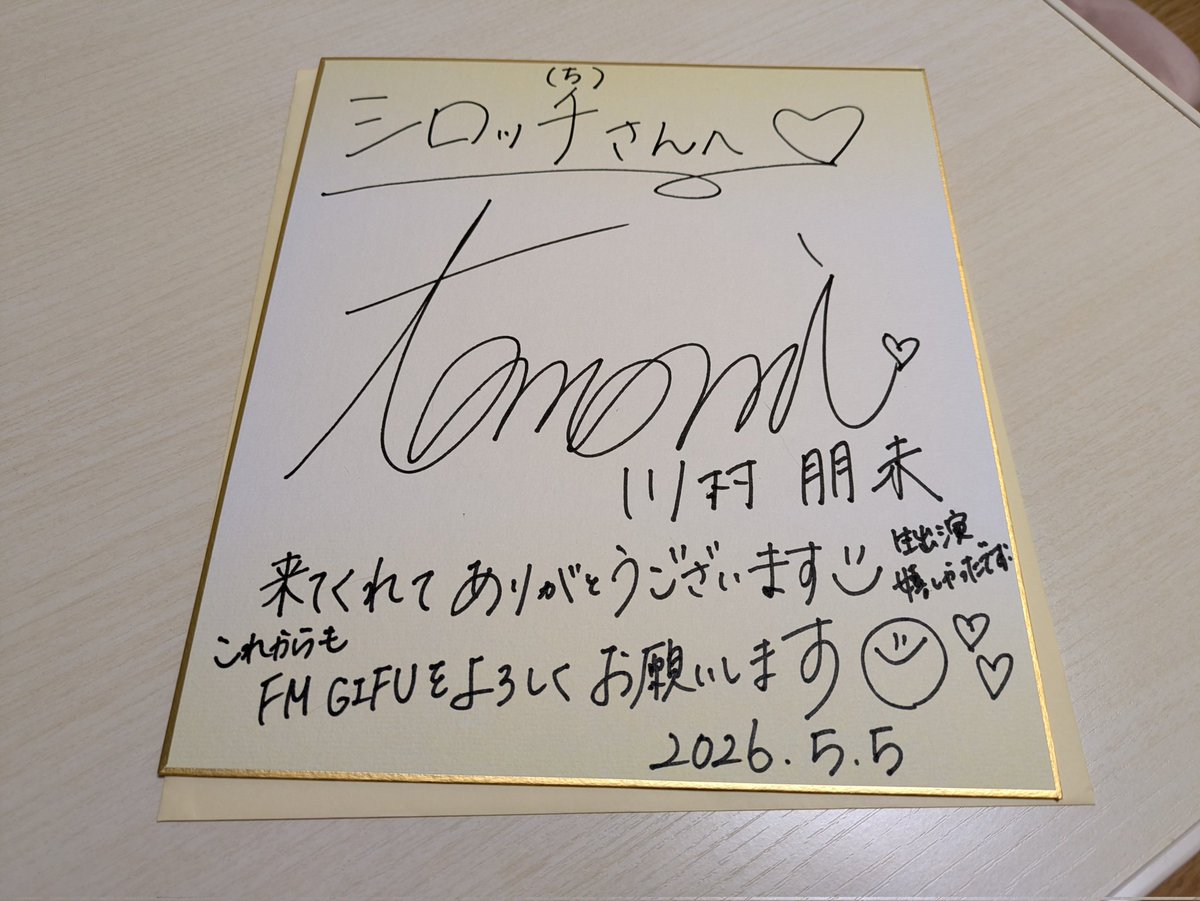 (ち)
シロッチさんへ♡
tomomi♡
川村 朋未
来てくれてありがとうございます
生出演
嬉しかったです
これからも
FM GIFUをよろしくお願いします
2026.5.5